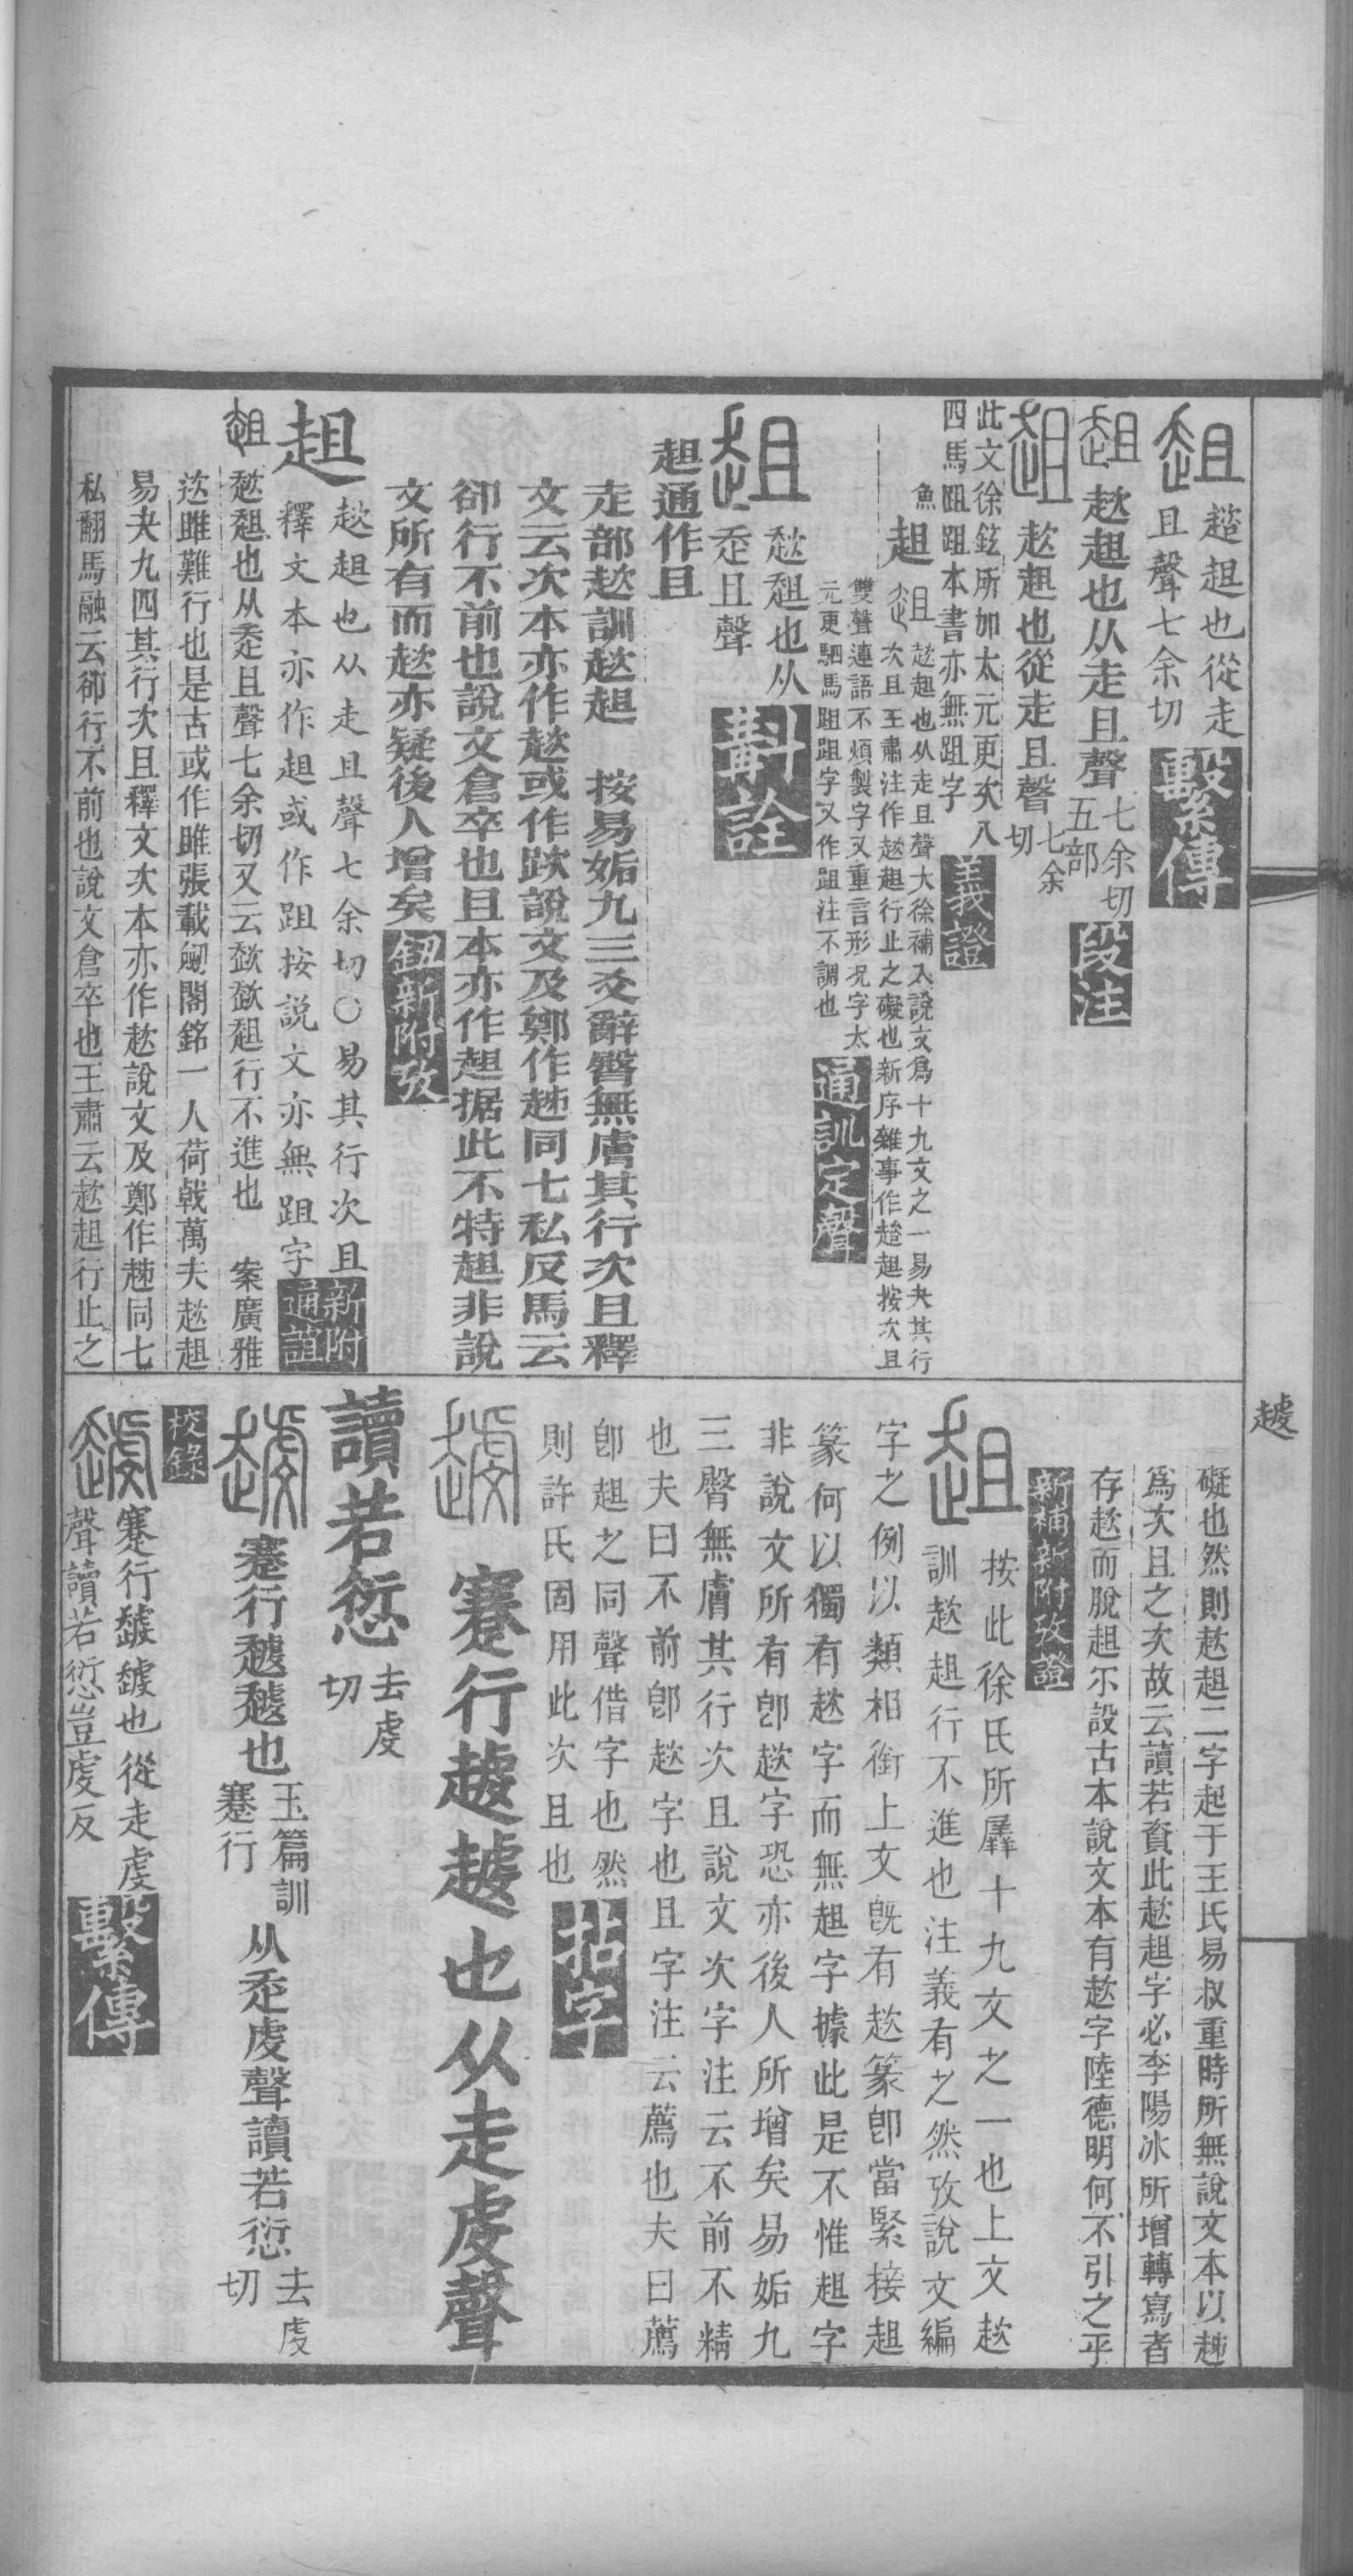 趄 趑趄也從走
且聲七余切 繫傳
趄 趑趄也从走且聲 七余切
五部 段注
趄 趑趄也從走且聲 七余
切
此文徐鉉所加太元更次八
四馬䟰跙本書亦無跙字 義證
魚
趄 趑趄也从走且聲大徐補入說文爲十九文之一易夬其行
次且王肅注作趑趄行止之礙也新序雜事作趦趄按次且
雙聲連語不煩製字又重言形況字太
元更駟馬跙跙字又作跙注不調也 通訓定聲
趄 趑趄也从
走且聲 斠詮
趄通作且
走部趑訓趑趄 按易姤九三爻辭臀無膚其行次且釋
文云次本亦作趑或作跌說文及鄭作趀同七私反馬云
卻行不前也說文倉卒也且本亦作趄据此不特趄非說
文所有而趑亦疑後人增矣 鈕新附攷
趄 趑趄也从走且聲七余切〇易其行次且
釋文本亦作趄或作跙按說文亦無跙字 新附
通誼
趄 趑趄也从走且聲七余切又云趑趑趄行不進也 案廣雅
趑雎難行也是古或作雎張載劒閣銘一人荷戟萬夫趑趄
易夬九四其行次且釋文次本亦作趑說文及鄭作趀同七
私翻馬融云卻行不前也說文倉卒也王肅云趑趄行止之
趢
礙也然則趑趄二字起于王氏易叔重時所無說文本以趀
爲次且之次故云讀若資此趑趄字必李陽冰所增轉寫者
存趑而脫趄尒設古本說文本有趑字陸德明何不引之乎
新補新附攷證
趄 按此徐氏所羼十九文之一也上文趑
訓趑趄行不進也注義有之然攷說文編
字之例以類相銜上文旣有趑篆卽當緊接趄
篆何以獨有趑字而無趄字據此是不惟趄字
非說文所有卽趑字恐亦後人所增矣易姤九
三臀無膚其行次且說文次字注云不前不精
也夫曰不前卽趑字也且字注云薦也夫曰薦
卽趄之同聲借字也然
則許氏固用此次且也 拈字
蹇行䞿䞿也从走虔聲
讀若愆 去虔
切
蹇行䞿䞿也 玉篇訓
蹇行 从走虔聲讀若愆 去虔
切
校錄
蹇行䞿䞿也從走虔
聲讀若愆豈虔反 繫傳